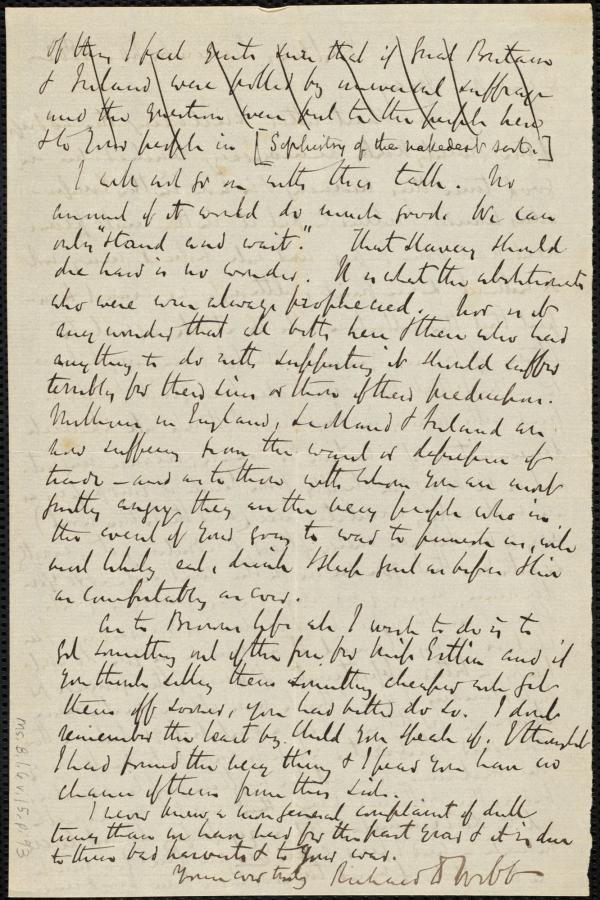 of them I feel quite sure that if Great Britain
& Ireland were polled by universal suffrage
and the question were put to the people here
& to your people in [Sophistry of the nakedest sort.]
I will not go on with this talk. No
amount of it would do much good. We can
only "stand and wait." That slavery should
die hard is no wonder. It is what the abolitionists
who were wise always prophecied. Nor is it
any wonder that all both here & there who had
anything to do with supporting it should suffer
terribly for their sins or those of their predecessors.
Millions in England, Scotland & Ireland are
now suffering from the want or depression of
trade – and as to those with whom you are most
justly angry they are the very people who in
the event of your going to war to punish us, will
most likely eat, drink & sleep just as before & live
as comfortably as ever.
As to Brown's life all I wish to do is to
get something out of the fire for Miss Estlin and if
you think selling them something cheaper will get
them off sooner, you had better do so. I don't
remember the least by Child you speak of. I thought
I had found the very thing & I fear you have no
chance of them from this side.
I never knew a more general complaint of dull
times than we have had for the past year & it is due
to three bad harvests & to your war.
Yours ever truly Richard D Webb
Ms. B.1.6 v.15, p. 93